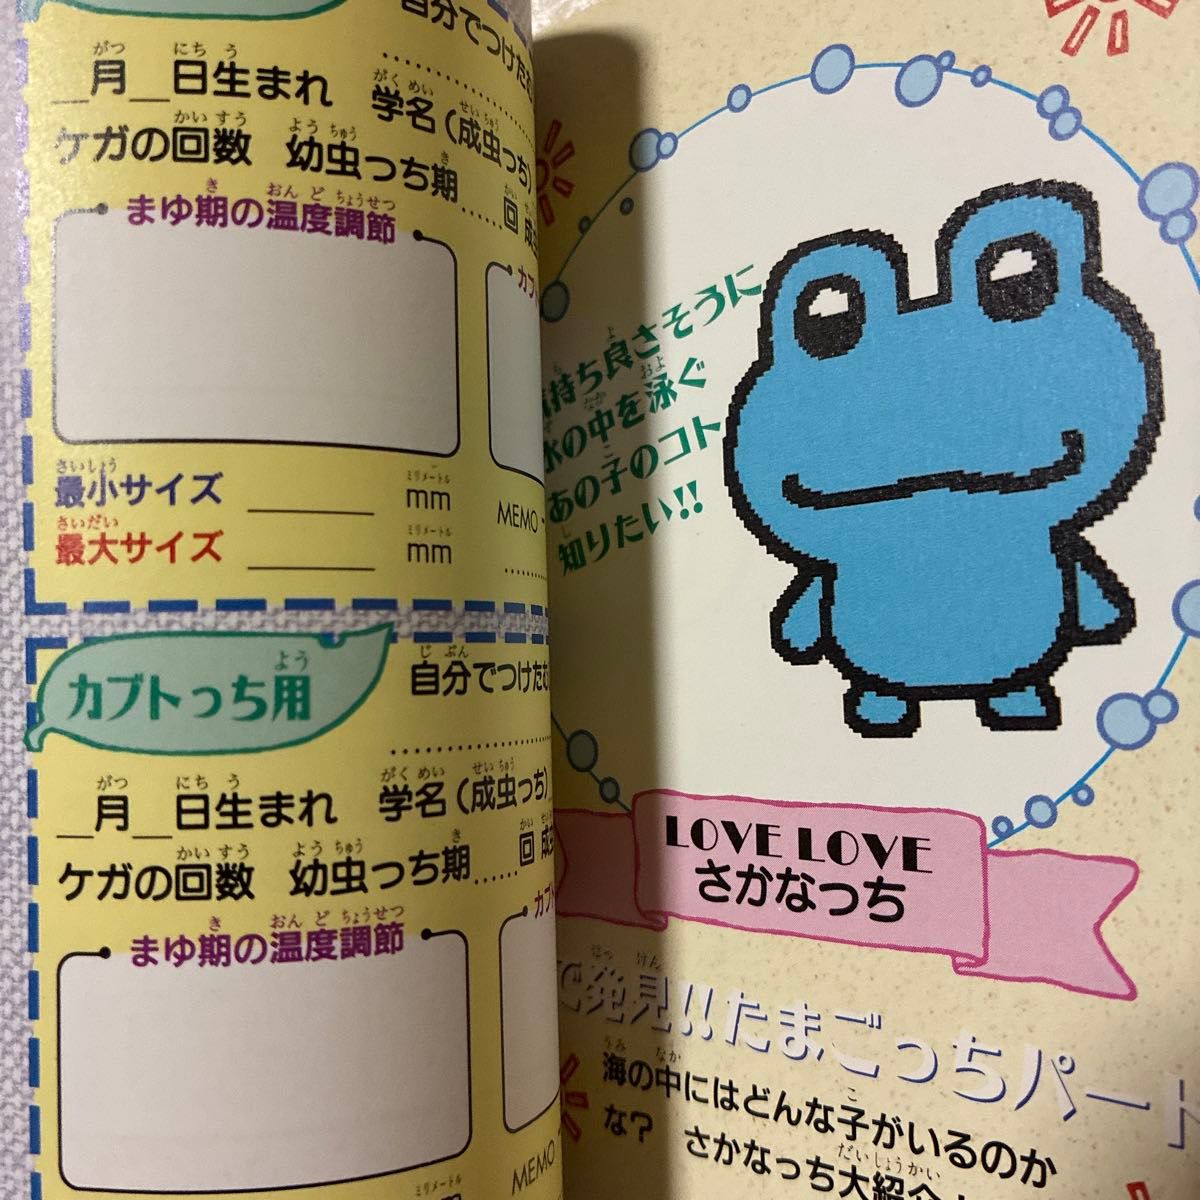 自分でつけた
＿月＿日生まれ　学名（成虫っち）
ケガの回数　幼虫っち期……回
まゆ期の温度調節
最小サイズ　＿＿＿mm
最大サイズ　＿＿＿mm
MEMO
カブトっち用
自分でつけた
＿月＿日生まれ　学名（成虫っち）
ケガの回数　幼虫っち期……回
まゆ期の温度調節
MEMO
持ち良さそうに
水の中を泳ぐ
あの子のコト
知りたい!!
LOVE LOVE
さかなっち
で発見!!たまごっちパート
海の中にはどんな子がいるのか
な?　さかなっち大紹介